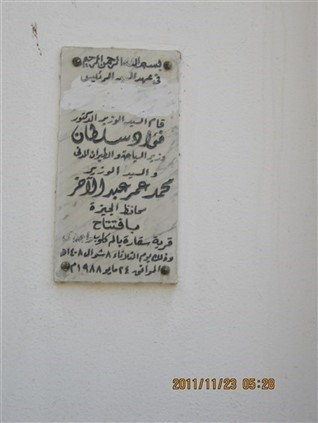 بسم الله الرحمن الرحيم
فى عهد السيد الرئيس
قام السيد الوزير الدكتور
فؤاد سلطان
وزير السياحة والطيران المدنى
و السيد الوزير
محمد عمر عبد الآخر
محافظ الجيزة
بافتتاح
قرية سقارة بالم كلوب
وذلك يوم الثلاثاء ٨ شوال ١٤٠٨ه
الموافق ٢٤ مايو ١٩٨٨م
2011/11/23 05:28